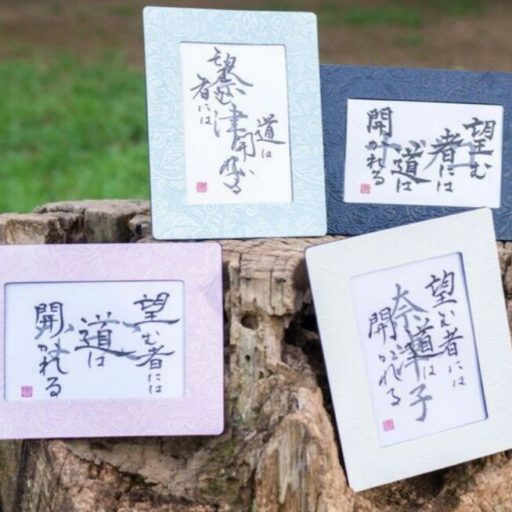 望む
者には
奈津
道は
開かれる
望む
者には
道は
開かれる
望む者には
道は
開かれる
望む者には
道は
奈津子
開かれる